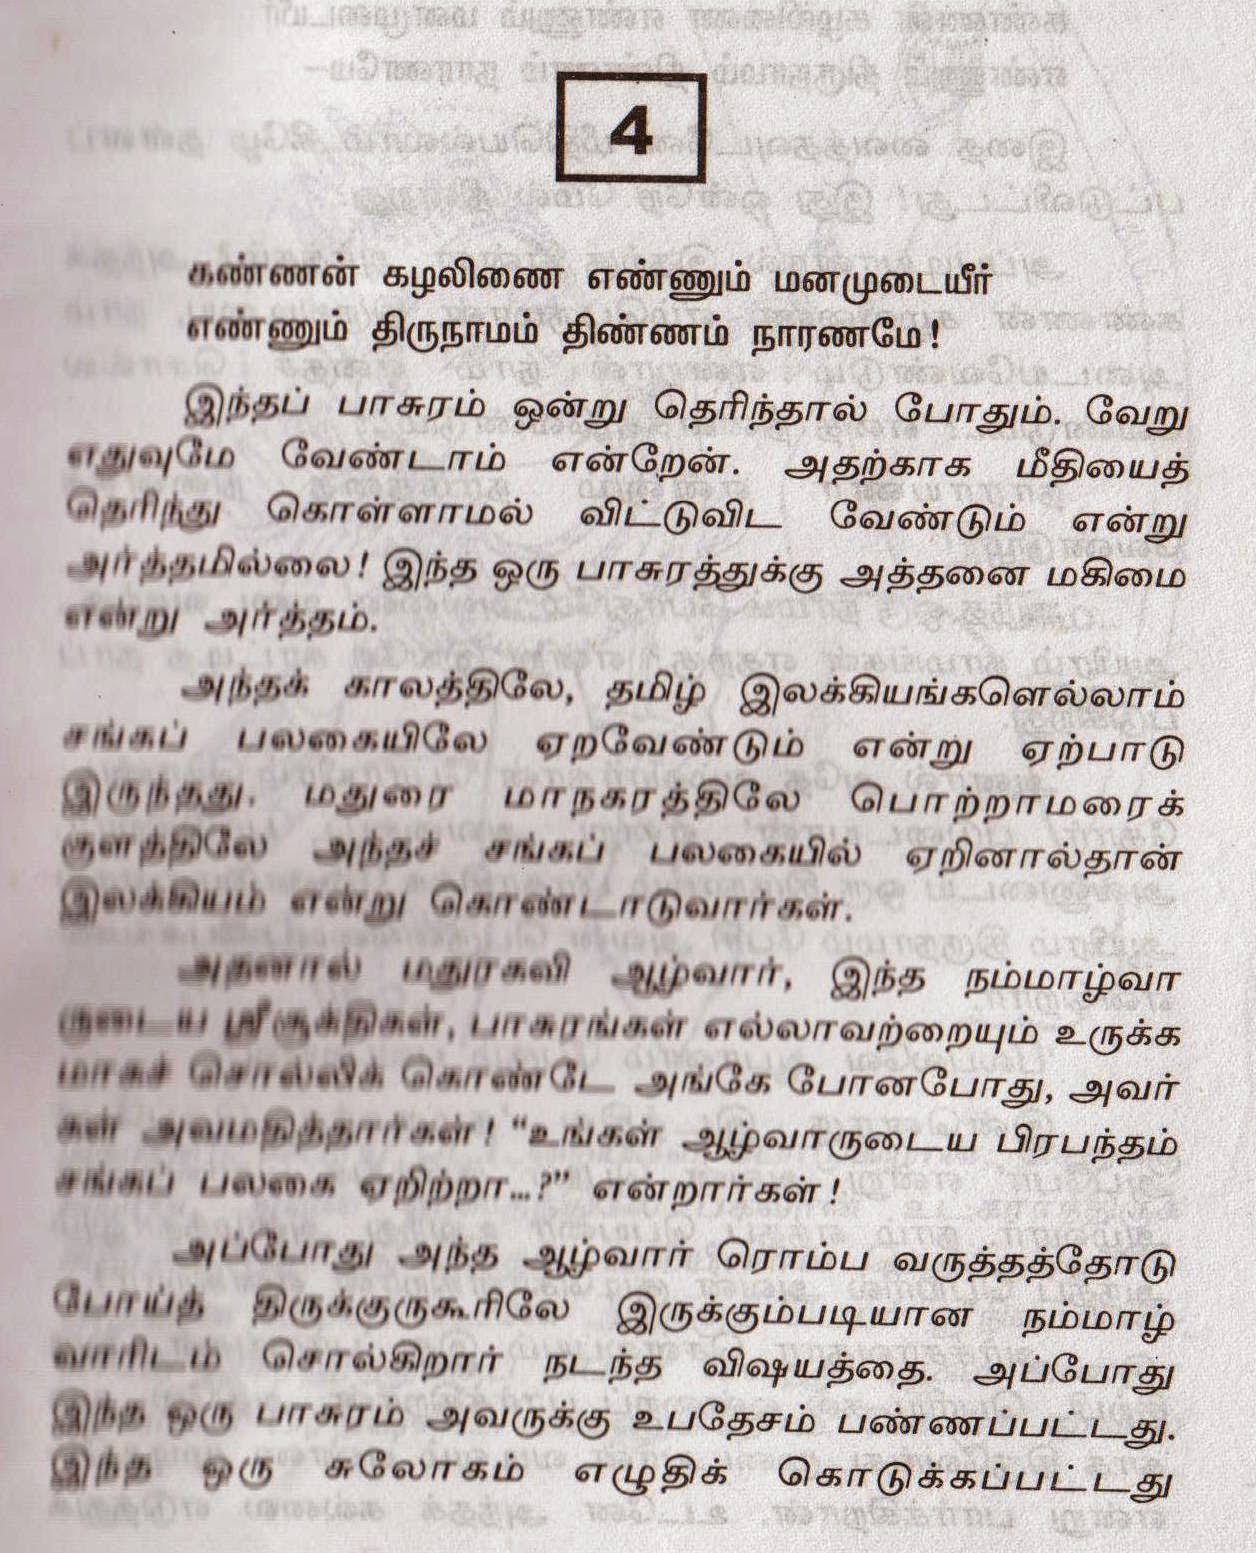 4
கண்ணன் கழலிணை எண்ணும் மனமுடையீர்
எண்ணும் திருநாமம் திண்ணம் நாரணமே!
இந்தப் பாசுரம் ஒன்று தெரிந்தால் போதும். வேறு
எதுவுமே வேண்டாம் என்றேன். அதற்காக மீதியைத்
தெரிந்து கொள்ளாமல் விட்டுவிட வேண்டும் என்று
அர்த்தமில்லை! இந்த ஒரு பாசுரத்துக்கு அத்தனை மகிமை
என்று அர்த்தம்.
அந்தக் காலத்திலே, தமிழ் இலக்கியங்களெல்லாம்
சங்கப் பலகையிலே ஏறவேண்டும் என்று ஏற்பாடு
இருந்தது. மதுரை மாநகரத்திலே பொற்றாமரைக்
குளத்திலே அந்தச் சங்கப் பலகையில் ஏறினால்தான்
இலக்கியம் என்று கொண்டாடுவார்கள்.
அதனால் மதுரகவி ஆழ்வார், இந்த நம்மாழ்வா
ருடைய ஸ்ரீசூக்திகள், பாசுரங்கள் எல்லாவற்றையும் உருக்க
மாகச் சொல்லிக் கொண்டே அங்கே போனபோது, அவர்
கள் அவமதித்தார்கள்! “உங்கள் ஆழ்வாருடைய பிரபந்தம்
சங்கப் பலகை ஏறிற்றா...?” என்றார்கள்!
அப்போது அந்த ஆழ்வார் ரொம்ப வருத்தத்தோடு
போய்த் திருக்குருகூரிலே இருக்கும்படியான நம்மாழ்
வாரிடம் சொல்கிறார் நடந்த விஷயத்தை. அப்போது
இந்த ஒரு பாசுரம் அவருக்கு உபதேசம் பண்ணப்பட்டது.
இந்த ஒரு சுலோகம் எழுதிக் கொடுக்கப்பட்டது